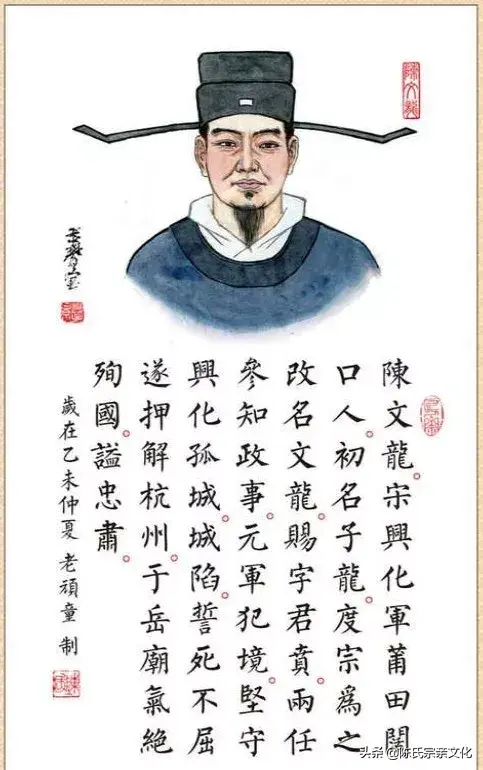 陳文龍
陳文龍。宋興化軍莆田闊
口人。初名子龍。度宗爲之
改名文龍。賜字君賁。兩任
參知政事。元軍犯境。堅守
興化孤城。城陷。誓死不屈
遂押解杭州。于岳廟氣絕
殉國。諡忠肅。
歲在乙未仲夏 老頑童 制
头条 @陈氏宗亲文化